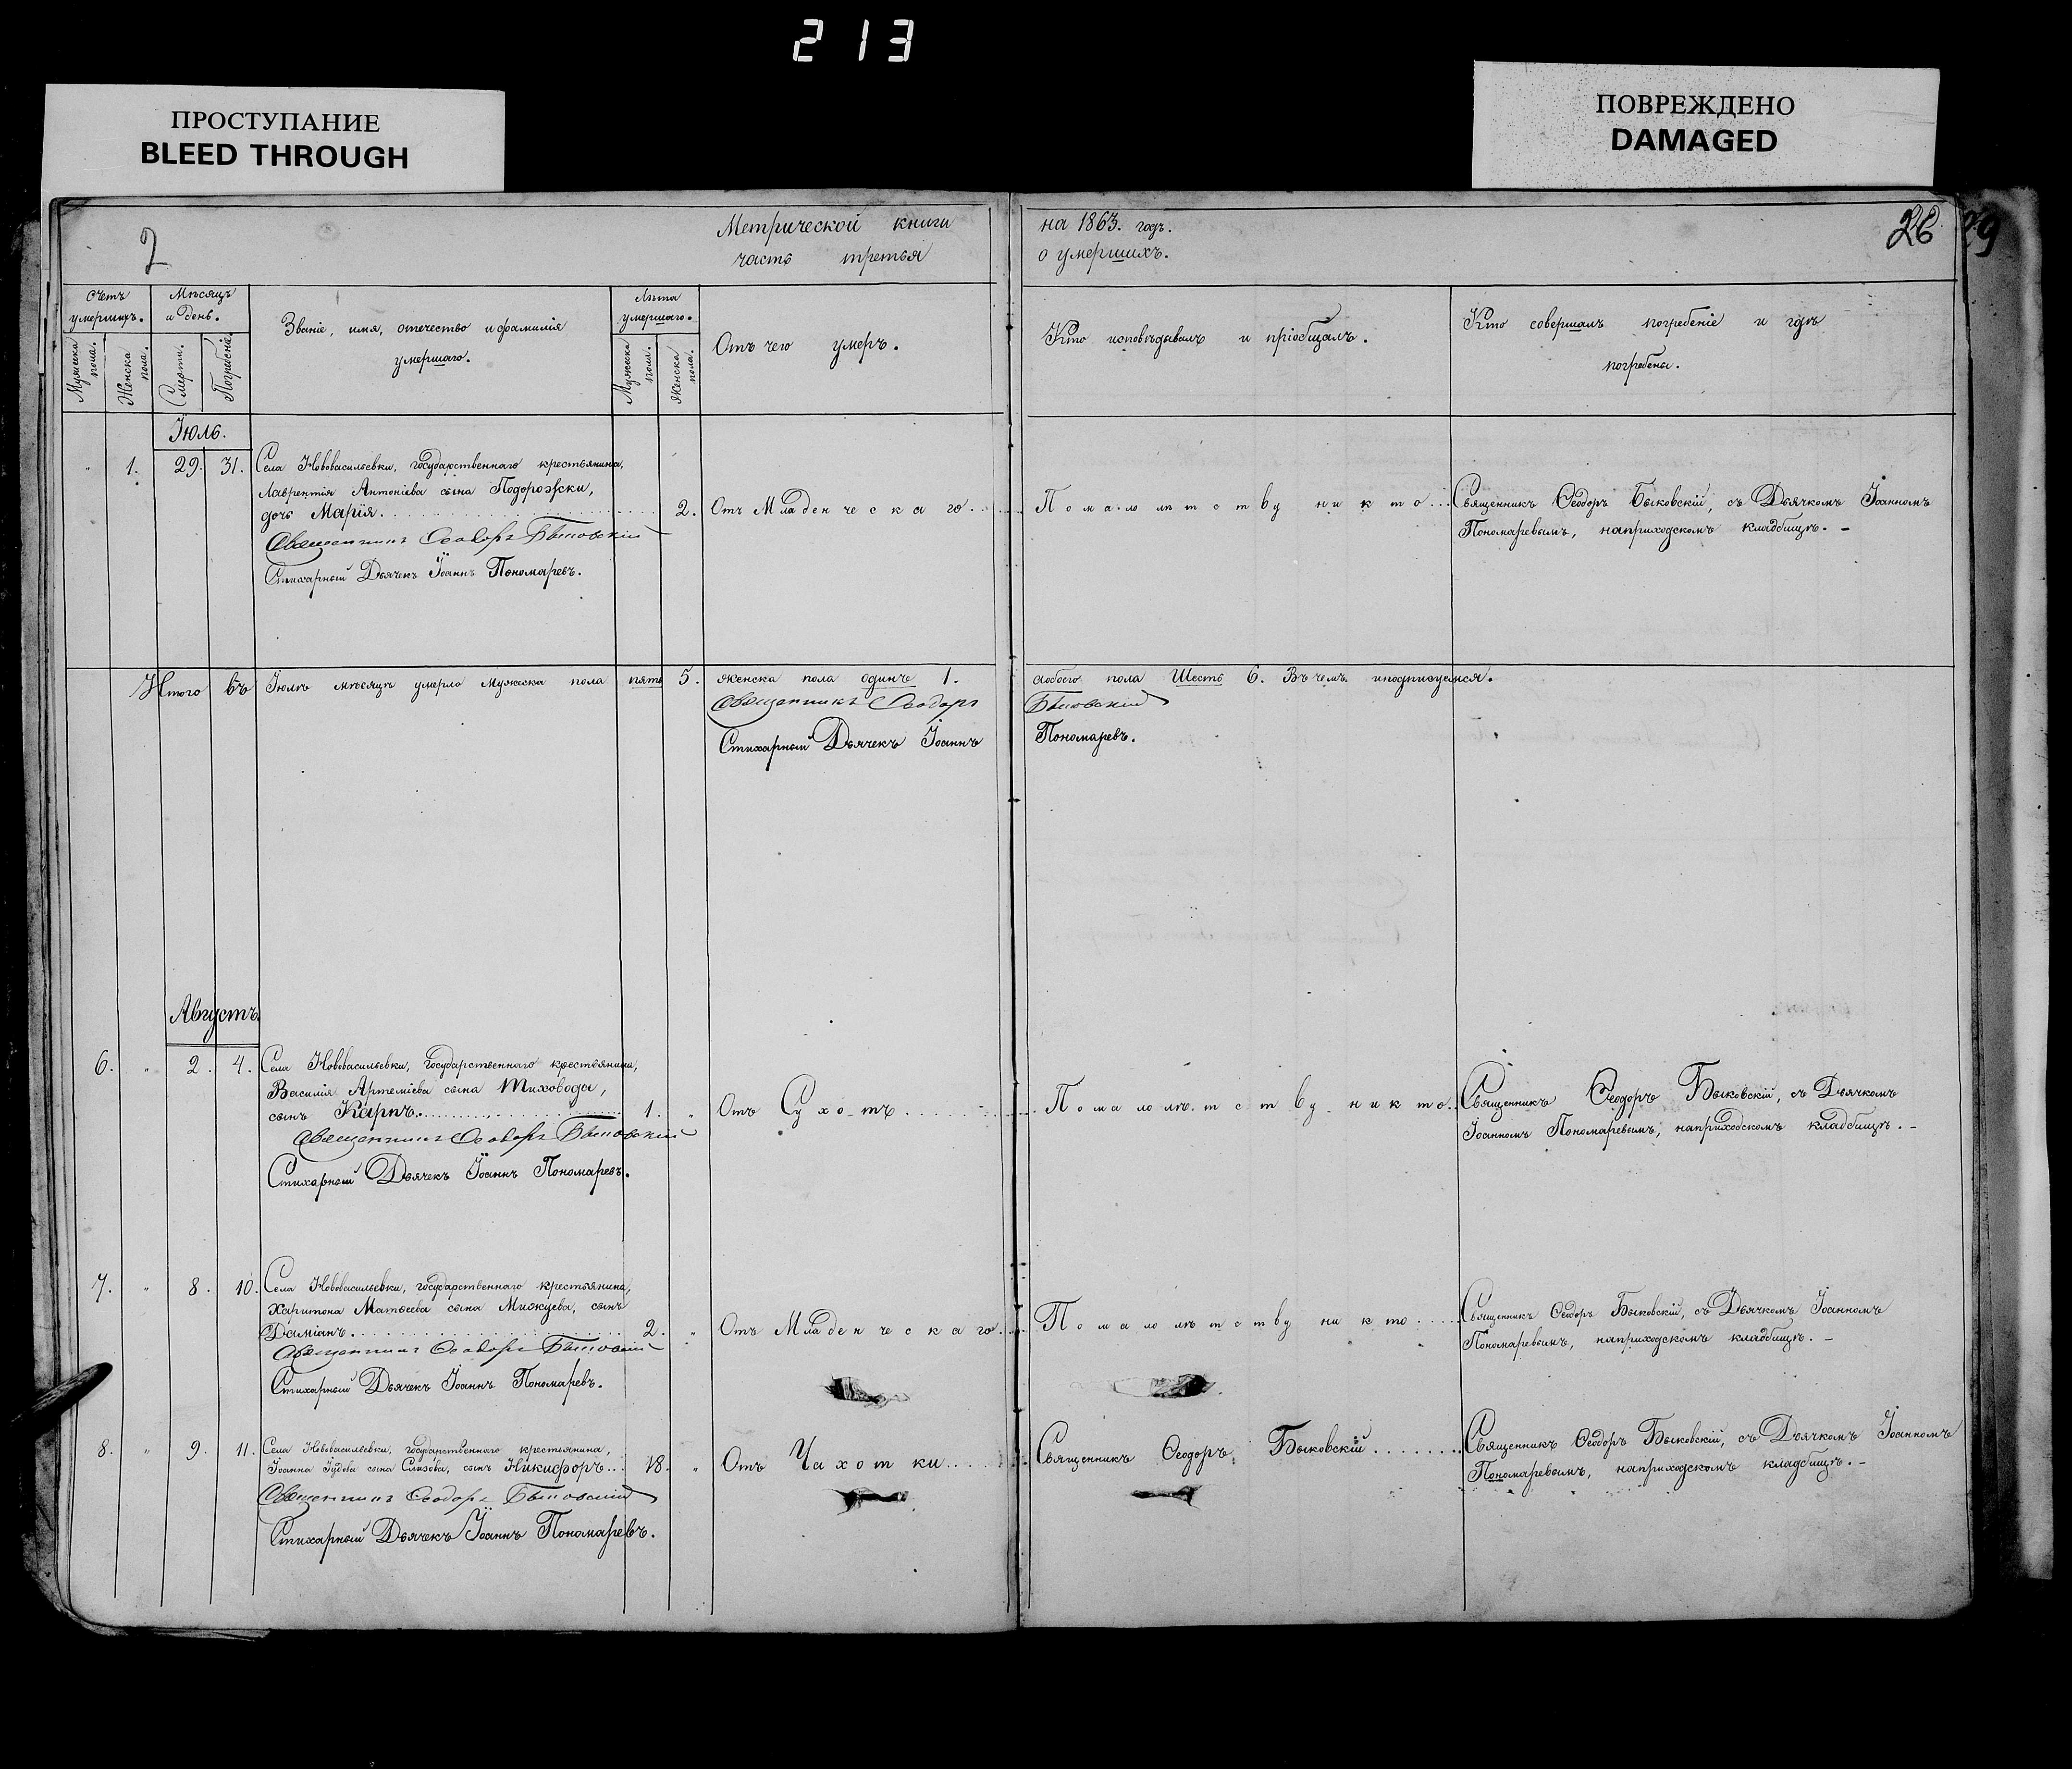 213
ПРОСТУПАНИЕ
BLEED THROUGH
ПОВРЕЖДЕНО
DAMAGED
2
Метрической книги
часть третья
на 1863. годъ.
о умершихъ.
26
29
Счетъ умершихъ.
Мужеска пола.
Женска пола.
Мѣсяцъ и день.
Смерти.
Погребенія.
Званіе, имя, отечество и фамилія
умершаго.
Лѣта умершаго.
Мужеска пола.
Женска пола.
Отъ чего умеръ.
Кто исповѣдывалъ и пріобщалъ.
Кто совершалъ погребеніе и гдѣ
погребены.
Іюль.
" 1. 29. 31. Села Нововасильевки, государственнаго крестьянина,
Лаврентія Антоніева сына Подорожски,
дочь Марія. 2. Отъ Младенческаго. По малолѣтству никто. Священникъ Ѳеодоръ Быковскій, съ Дьячкомъ Іоанномъ
Пономаревымъ, на приходскомъ кладбищѣ. -
Священникъ Ѳеодоръ Быковскій
Стихарный Дьячекъ Іоаннъ Пономаревъ.
Итого въ Іюлѣ мѣсяцѣ умерло Мужеска пола пять 5. женска пола одинъ 1. а обоего пола Шесть 6. Въ чемъ и подписуемся.
Священникъ Ѳеодоръ Быковскій
Стихарный Дьячекъ Іоаннъ Пономаревъ.
Августъ.
6. " 2. 4. Села Нововасильевки, государственнаго крестьянина,
Василія Артеміева сына Тиховода,
сынъ Карпъ. 1. " Отъ Сухотъ. По малолѣтству никто. Священникъ Ѳеодоръ Быковскій, съ Дьячкомъ
Іоанномъ Пономаревымъ, на приходскомъ кладбищѣ. -
Священникъ Ѳеодоръ Быковскій
Стихарный Дьячекъ Іоаннъ Пономаревъ.
7. " 8. 10. Села Нововасильевки, государственнаго крестьянина,
Харитона Матѳеева сына Мискуева, сынъ
Даміанъ. 2. " Отъ Младенческаго. По малолѣтству никто. Священникъ Ѳеодоръ Быковскій, съ Дьячкомъ Іоанномъ
Пономаревымъ, на приходскомъ кладбищѣ. -
Священникъ Ѳеодоръ Быковскій
Стихарный Дьячекъ Іоаннъ Пономаревъ.
8. " 9. 11. Села Нововасильевки, государственнаго крестьянина,
Іоанна Іудова сына Слизова, сынъ Никифоръ. 18. " Отъ Чахотки. Священникъ Ѳеодоръ Быковскій. Священникъ Ѳеодоръ Быковскій, съ Дьячкомъ Іоанномъ
Пономаревымъ, на приходскомъ кладбищѣ. -
Священникъ Ѳеодоръ Быковскій
Стихарный Дьячекъ Іоаннъ Пономаревъ.